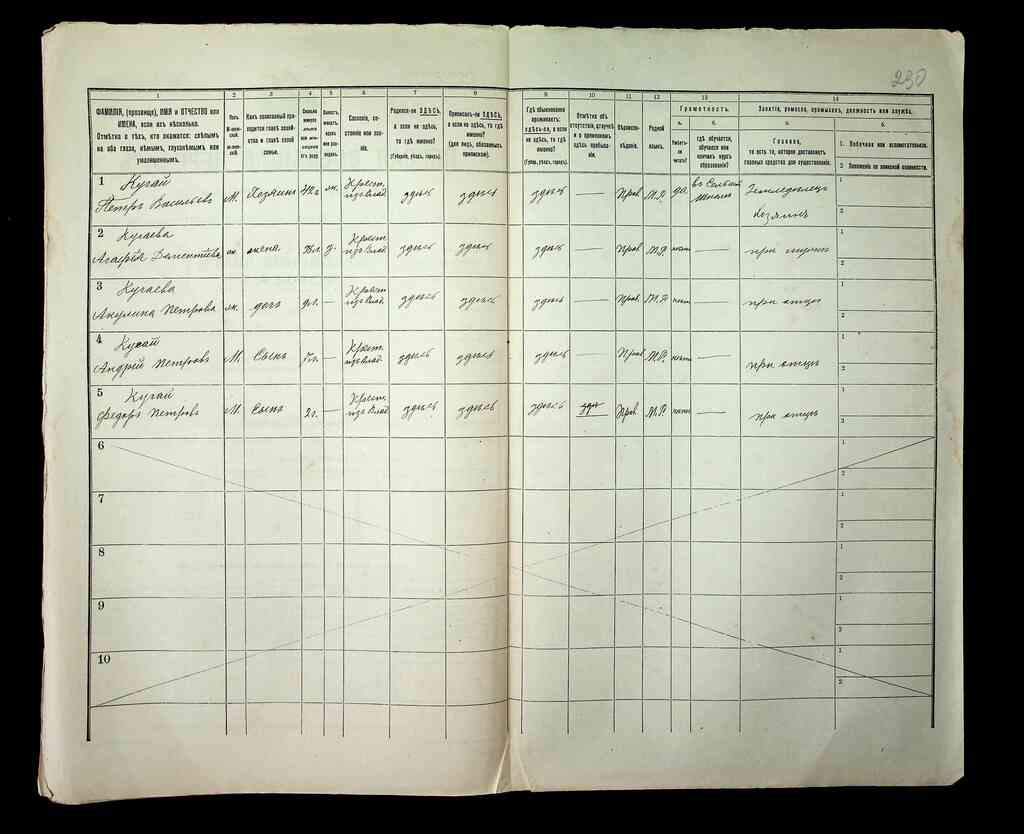 230
1 2 3 4 5 6 7 8 9 10 11 12 13 14
ФАМИЛІЯ, (прозвище), ИМЯ и ОТЧЕСТВО или
ИМЕНА, если ихъ нѣсколько.
Отмѣтка о тѣхъ, кто окажется: слѣпымъ
на оба глаза, нѣмымъ, глухонѣмымъ или
умалишеннымъ.
Полъ.
М-муж-
ской.
Ж-жен-
скій.
Какъ записанный при-
ходится главѣ хозяй-
ства и главѣ своей
семьи.
Сколько
минуло
лѣтъ
или мѣся-
цевъ
отъ роду.
Холостъ,
женатъ,
вдовъ
или раз-
веденъ.
Сословіе, со-
стояніе или зва-
ніе.
Родился-ли ЗДѢСЬ,
а если не здѣсь,
то гдѣ именно?
(Губернія, уѣздъ, городъ).
Приписанъ-ли ЗДѢСЬ,
а если не здѣсь, то гдѣ
именно?
(для лицъ, обязанныхъ
припискою).
Гдѣ обыкновенно
проживаетъ:
здѣсь-ли, а если
не здѣсь, то гдѣ
именно?
(Губер., уѣздъ, городъ).
Отмѣтка объ
отсутствіи, отлучкѣ
и о временномъ
здѣсь пребыва-
ніи.
Вѣроиспо-
вѣданіе.
Родной
языкъ.
Грамотность.
а.
Умѣетъ-
ли
читать?
б.
гдѣ обучается,
обучался или
кончилъ курсъ
образованія?
Занятіе, ремесло, промыселъ, должность или служба.
а.
Главное,
то есть то, которое доставляетъ
главныя средства для существованія.
б.
1. Побочное или вспомогательное.
2. Положеніе по воинской повинности.
1 Кугай
Петръ Васильевъ М. Хозяинъ 42 г. ж. Крест. изъ Влад. здѣсь здѣсь здѣсь — Прав. М.Р. да въ Сельской Школѣ Земледѣлецъ Хозяинъ 1 2
2 Кугаева
Агафія Дементіева ж. жена з. Крест. изъ Влад. здѣсь здѣсь здѣсь — Прав. М.Р. нѣтъ — при мужѣ 1 2
3 Кугаева
Акулина Петрова ж. дочь 9 г. — Крест. изъ Влад. здѣсь здѣсь здѣсь — Прав. М.Р. нѣтъ — при отцѣ 1 2
4 Кугай
Андрѣй Петровъ М. Сынъ — Крест. изъ Влад. здѣсь здѣсь здѣсь — Прав. М.Р. нѣтъ — при отцѣ 1 2
5 Кугай
Федоръ Петровъ М. Сынъ 2 г. — Крест. изъ Влад. здѣсь здѣсь здѣсь Прав. М.Р. нѣтъ — при отцѣ 1 2
6 1 2
7 1 2
8 1 2
9 1 2
10 1 2